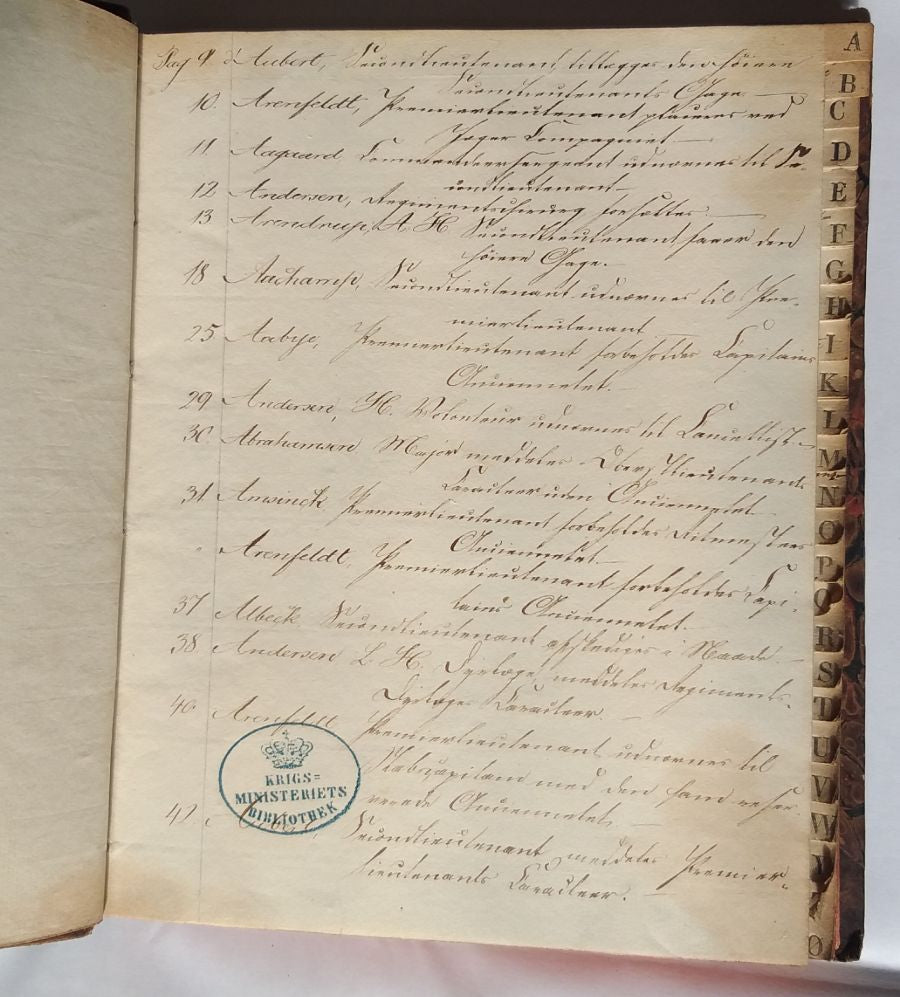 Pag 9. d'Aubert, Secondlieutenant, tillægges den høiere
Secondlieutenants Gage.
10. Arenfeldt, Premierlieutenant placeres ved
Jæger Compagniet
11. Aagaard Commandeersergeant udnævnes til Se-
condlieutenant
12 Andersen, Regimentschirurg forsættes.
13 Arendrup, A H Secondlieutenant faaer den
høiere Gage.
18 Secondlieutenant udnævnes til Pre-
mierlieutenant
25 Aabye, Premierlieutenant forbeholdes Capitains
Anciennetet.
29 Andersen, H. Volonteur udnævnes til Cancellist
30. Abrahamsen Major meddeles Oberstlieutenants
Caracteer uden Anciennetet
31 Premierlieutenant forbeholdes Ritmesters
Anciennetet.
" Arenfeldt, Premierlieutenant forbeholdes Capi-
tains Anciennetet.
37 Albeck, Secondlieutenant afskediges i Naade.
38. Andersen L. H. Dyrlæge, meddeles Regiments-
Dyrlæges Caracteer.
40. Arenfeldt Premierlieutenant udnævnes til
Stabscapitain med den ham reser
verede Anciennetet,
42. Secondlieutenant meddeles Premier-
lieutenants Caracteer.
KRIGS=
MINISTERIETS
BIBLIOTHEK
A
B
C
D
E
F
G
H
I
K
L
M
N
O
P
Q
R
S
T
U
V
W
Y
Ø